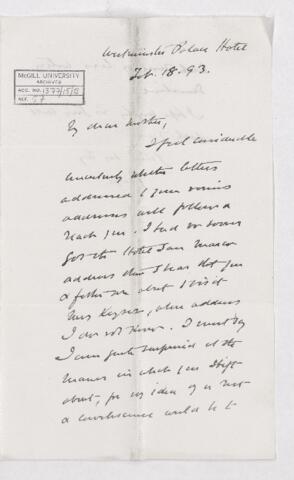 Westminster Palace Hotel
Feb. 18. 93.
McGILL UNIVERSITY
ARCHIVES
ACC. NO. 1377/5/8
REF. 57
My dear mother,
I feel considerable
uncertainty whether letters
addressed to your various
addresses will follow &
reach you. I had no sooner
got the Hotel San Marco
address than I hear that you
& father are about to visit
Mrs Keyser, whose address
I do not know. I must say
I am quite surprised at the
manner in which you shift
about, for my idea of a rest
& convalescence would be to